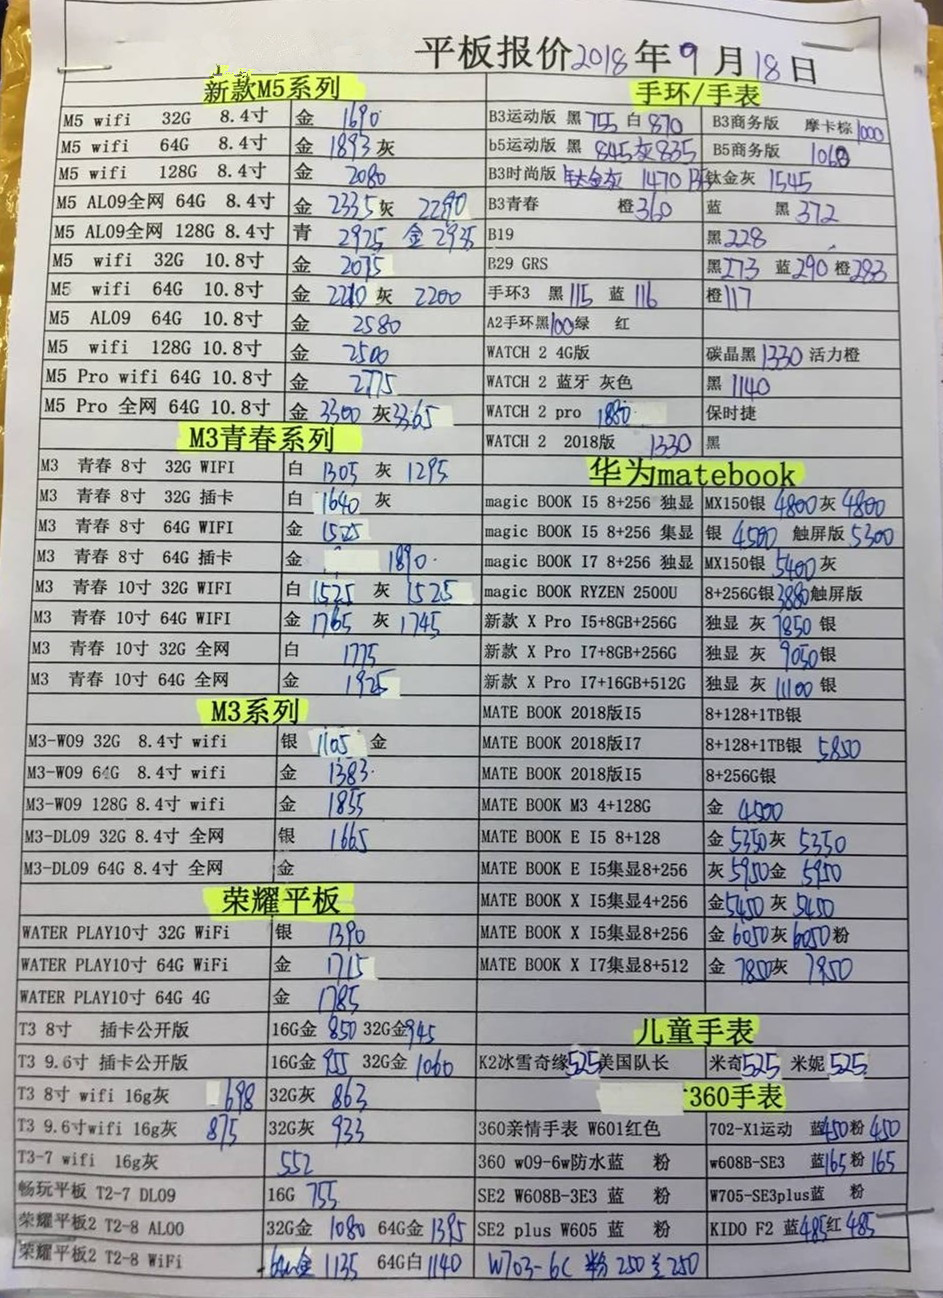 平板报价2018年9月18日
新款M5系列
M5 wifi 32G 8.4寸 金 1690
M5 wifi 64G 8.4寸 金 1893 灰
M5 wifi 128G 8.4寸 金 2080
M5 AL09全网 64G 8.4寸 金 2335 灰 2290
M5 AL09全网 128G 8.4寸 青 2925 金 2935
M5 wifi 32G 10.8寸 金 2075
M5 wifi 64G 10.8寸 金 2210 灰 2200
M5 AL09 64G 10.8寸 金 2580
M5 wifi 128G 10.8寸 金 2500
M5 Pro wifi 64G 10.8寸 金 2775
M5 Pro 全网 64G 10.8寸 金 3300 灰3365
M3青春系列
M3 青春 8寸 32G WIFI 白 1305 灰 1295
M3 青春 8寸 32G 插卡 白 1640 灰
M3 青春 8寸 64G WIFI 金 1525
M3 青春 8寸 64G 插卡 金 1890
M3 青春 10寸 32G WIFI 白 1525 灰 1525
M3 青春 10寸 64G WIFI 金 1765 灰 1745
M3 青春 10寸 32G 全网 白 1775
M3 青春 10寸 64G 全网 金 1925
M3系列
M3-W09 32G 8.4寸 wifi 银 1105 金
M3-W09 64G 8.4寸 wifi 金 1383
M3-W09 128G 8.4寸 wifi 金 1855
M3-DL09 32G 8.4寸 全网 银 1665
M3-DL09 64G 8.4寸 全网 金
荣耀平板
WATER PLAY10寸 32G WiFi 银 1390
WATER PLAY10寸 64G WiFi 金 1715
WATER PLAY10寸 64G 4G 金 1785
T3 8寸 插卡公开版 16G金 850 32G金945
T3 9.6寸 插卡公开版 16G金 955 32G金 1060
T3 8寸 wifi 16g灰 698 32G灰 863
T3 9.6寸wifi 16g灰 875 32G灰 933
T3-7 wifi 16g灰 552
畅玩平板 T2-7 DL09 16G 755
荣耀平板2 T2-8 AL00 32G金 1080 64G金 1395
荣耀平板2 T2-8 WiFi 金 1135 64G白 1140
手环/手表
B3运动版 黑 755 白 870 B3商务版 摩卡棕 1000
b5运动版 黑 845 灰 835 B5商务版 1068
B3时尚版 钛金灰 1470 钛金灰 1545
B3青春 橙 360 蓝 黑 372
B19 黑 228
B29 GRS 黑273 蓝290 橙283
手环3 黑 115 蓝 116 橙117
A2手环黑100绿 红
WATCH 2 4G版 碳晶黑 1330 活力橙
WATCH 2 蓝牙 灰色 黑 1140
WATCH 2 pro 1880 保时捷
WATCH 2 2018版 1330 黑
华为matebook
magic BOOK I5 8+256 独显 MX150银 4800 灰 4800
magic BOOK I5 8+256 集显 银 4500 触屏版 5300
magic BOOK I7 8+256 独显 MX150银 5400 灰
magic BOOK RYZEN 2500U 8+256G银3880触屏版
新款 X Pro I5+8GB+256G 独显 灰 7850 银
新款 X Pro I7+8GB+256G 独显 灰 9050银
新款 X Pro I7+16GB+512G 独显 灰 11100 银
MATE BOOK 2018版I5 8+128+1TB银
MATE BOOK 2018版I7 8+128+1TB银 5850
MATE BOOK 2018版I5 8+256G银
MATE BOOK M3 4+128G 金 4500
MATE BOOK E I5 8+128 金 5350 灰 5350
MATE BOOK E I5集显8+256 灰 5950金 5950
MATE BOOK X I5集显4+256 金5450 灰 5450
MATE BOOK X I5集显8+256 金 6050 灰 6050 粉
MATE BOOK X I7集显8+512 金 7850灰 7850
儿童手表
K2冰雪奇缘525美国队长 米奇525 米妮 525
360手表
360亲情手表 W601红色 702-X1运动 蓝450粉 450
360 w09-6w防水蓝 粉 w608B-SE3 蓝165粉 165
SE2 W608B-3E3 蓝 粉 W705-SE3plus蓝 粉
SE2 plus W605 蓝 粉 KIDO F2 蓝485红 485
W703-6C 粉 250 兰 250